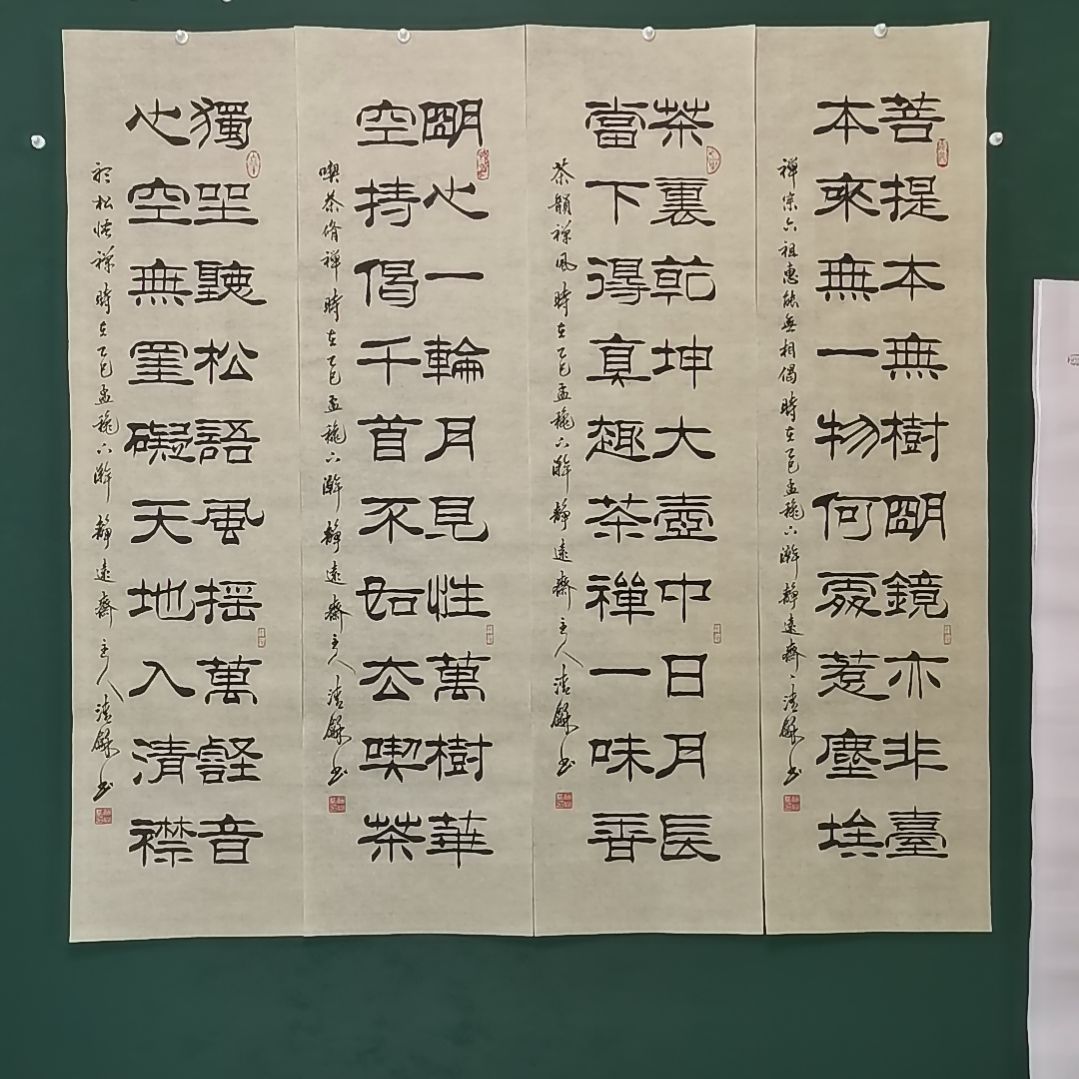 菩提本無樹朙鏡亦非臺
本來無一物何處惹塵埃
禪宗六祖惠能無相偈時在乙巳孟穐下澣靜遠齋清龢書
茶裏乾坤大壺中日月長
當下得真趣茶禪一味香
茶韻禪風時在乙巳孟穐下澣靜遠齋主人清龢書
朙心一輪月見性萬樹華
空持偈千首不如去喫茶
喫茶脩禪時在乙巳孟穐下澣靜遠齋主人清龢書
獨坐聽松語風搖萬壑音
心空無罣礙天地入清襟
松悟禪時在乙巳孟穐下澣靜遠齋主人清龢書